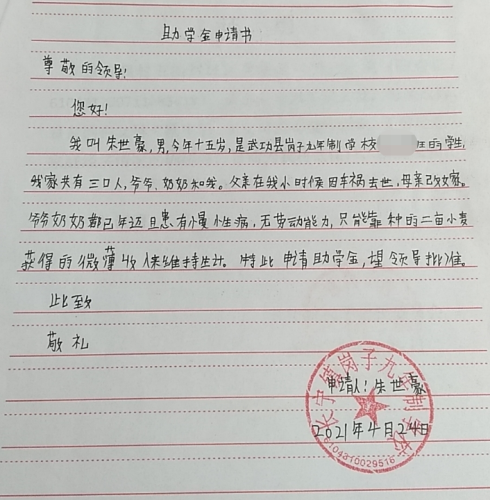 助学金申请书
尊敬的领导:
您好!
我叫朱世豪,男,今年十五岁,是武功县岗子九年制学校 班的学生,
我家共有三口人,爷爷、奶奶和我。父亲在我小时候因车祸去世,母亲改嫁。
爷爷奶奶都已年迈且患有慢性病,无劳动能力,只能靠种的二亩小麦
获得的微薄收入来维持生计。特此申请助学金,望领导批准。
此致
敬礼
申请人:朱世豪
2021年4月24日
长宁镇岗子九年制学校
6104310029516